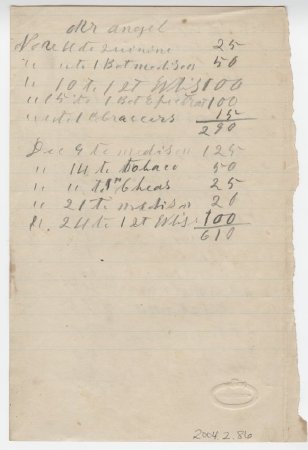 Mr angel
Nove 4 to Quinine 25
" " to 1 Bot medison 50
" 10 to 1 qt Whis 100
" 15 to 1 Bot 100
" to 1 15
290
Dec 9 to medison 125
" 14 to tobaco 50
" " to Cheas 25
" 21 to medison 20
" 24 to 1 qt Whis 100
610
2004.2.86